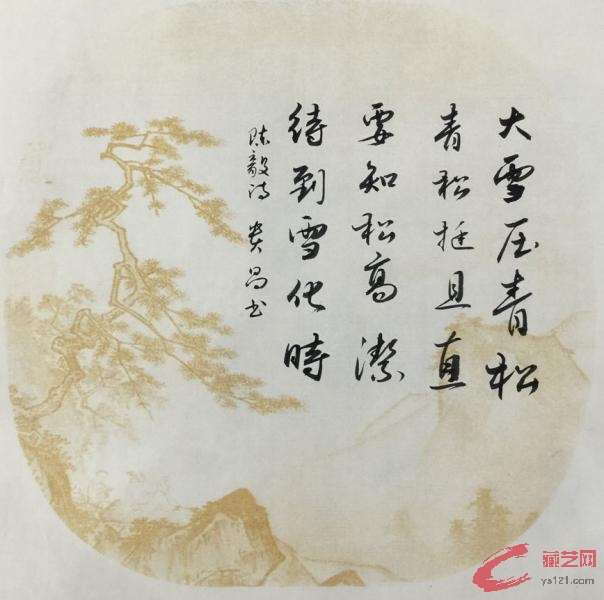 大雪压青松
青松挺且直
要知松高潔
待到雪化時
陈毅诗 贵昌书
藏艺网
ys121.com